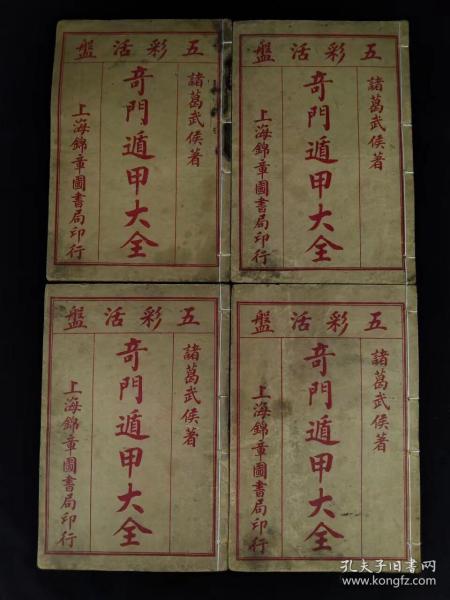 五彩活盤
諸葛武侯著
奇門遁甲大全
上海錦章圖書局印行
五彩活盤
諸葛武侯著
奇門遁甲大全
上海錦章圖書局印行
五彩活盤
諸葛武侯著
奇門遁甲大全
上海錦章圖書局印行
五彩活盤
諸葛武侯著
奇門遁甲大全
上海錦章圖書局印行
孔夫子旧书网
www.kongfz.com